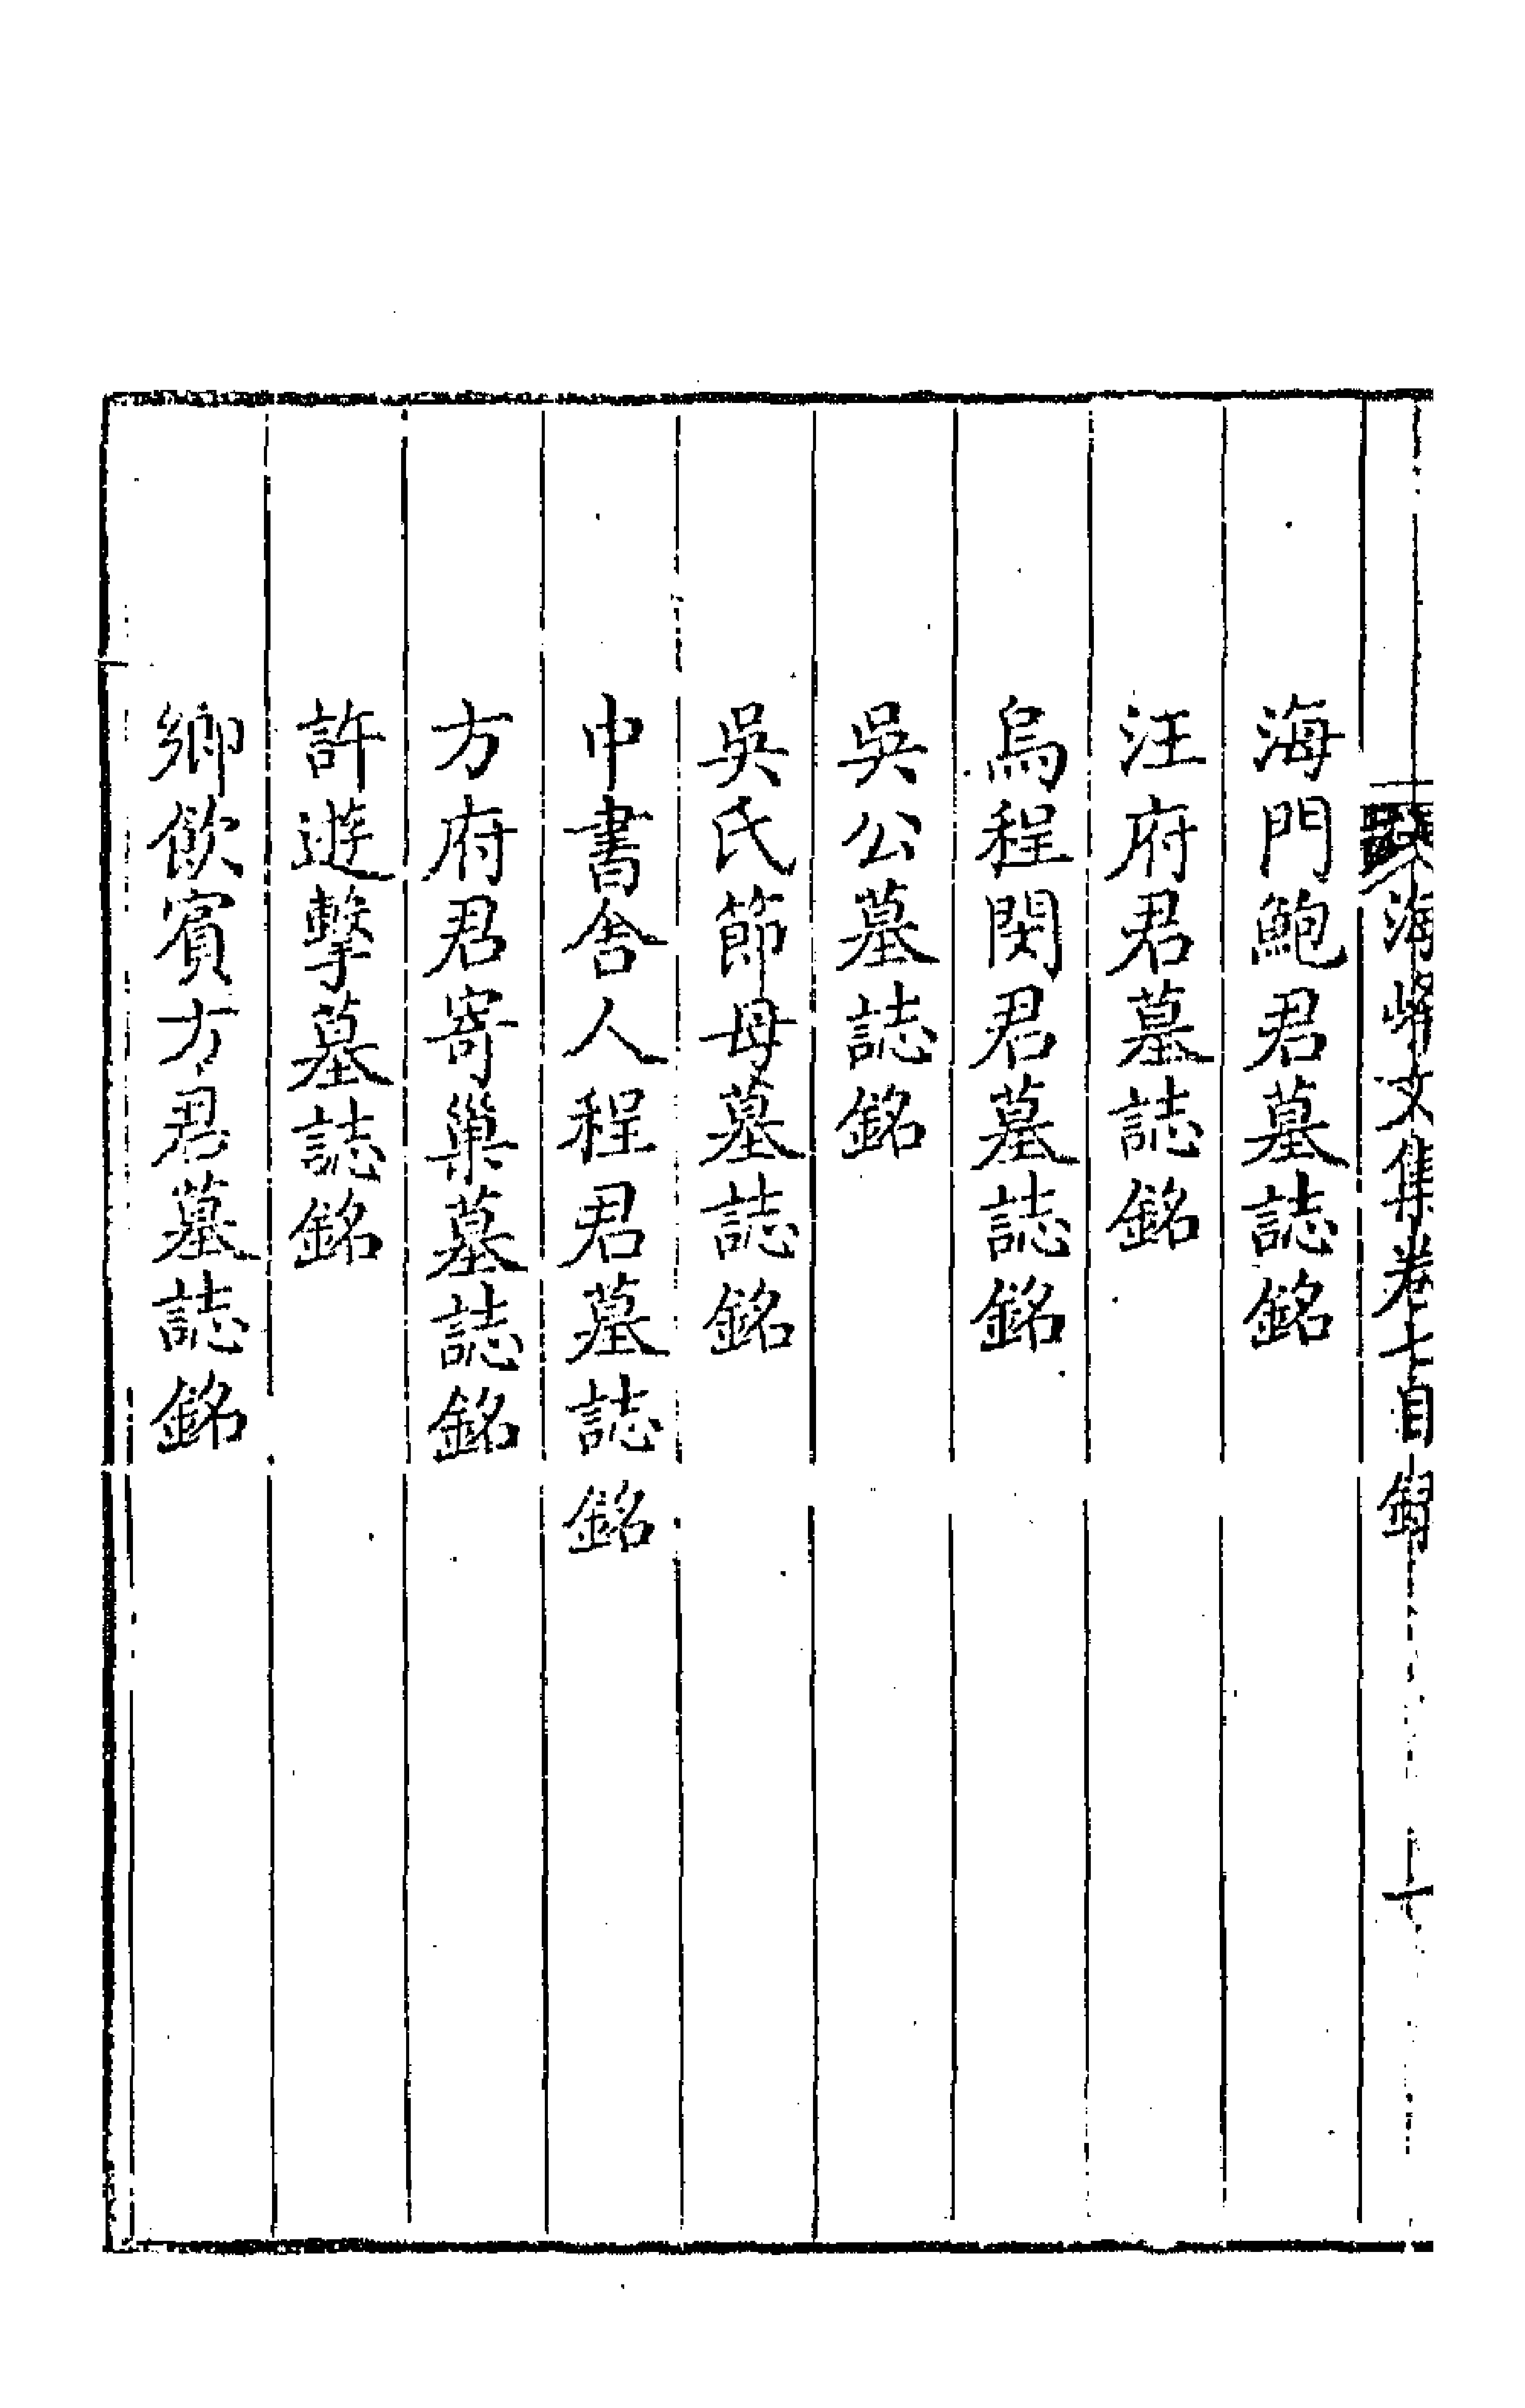 海峯文集卷七目錄
一
海門鮑君墓誌銘
汪府君墓誌銘
烏程閔君墓誌銘
吳公墓誌銘
吳氏節母墓誌銘
中書舍人程君墓誌銘
方府君寄巢墓誌銘
許遊擊墓誌銘
鄉飲賓方君墓誌銘